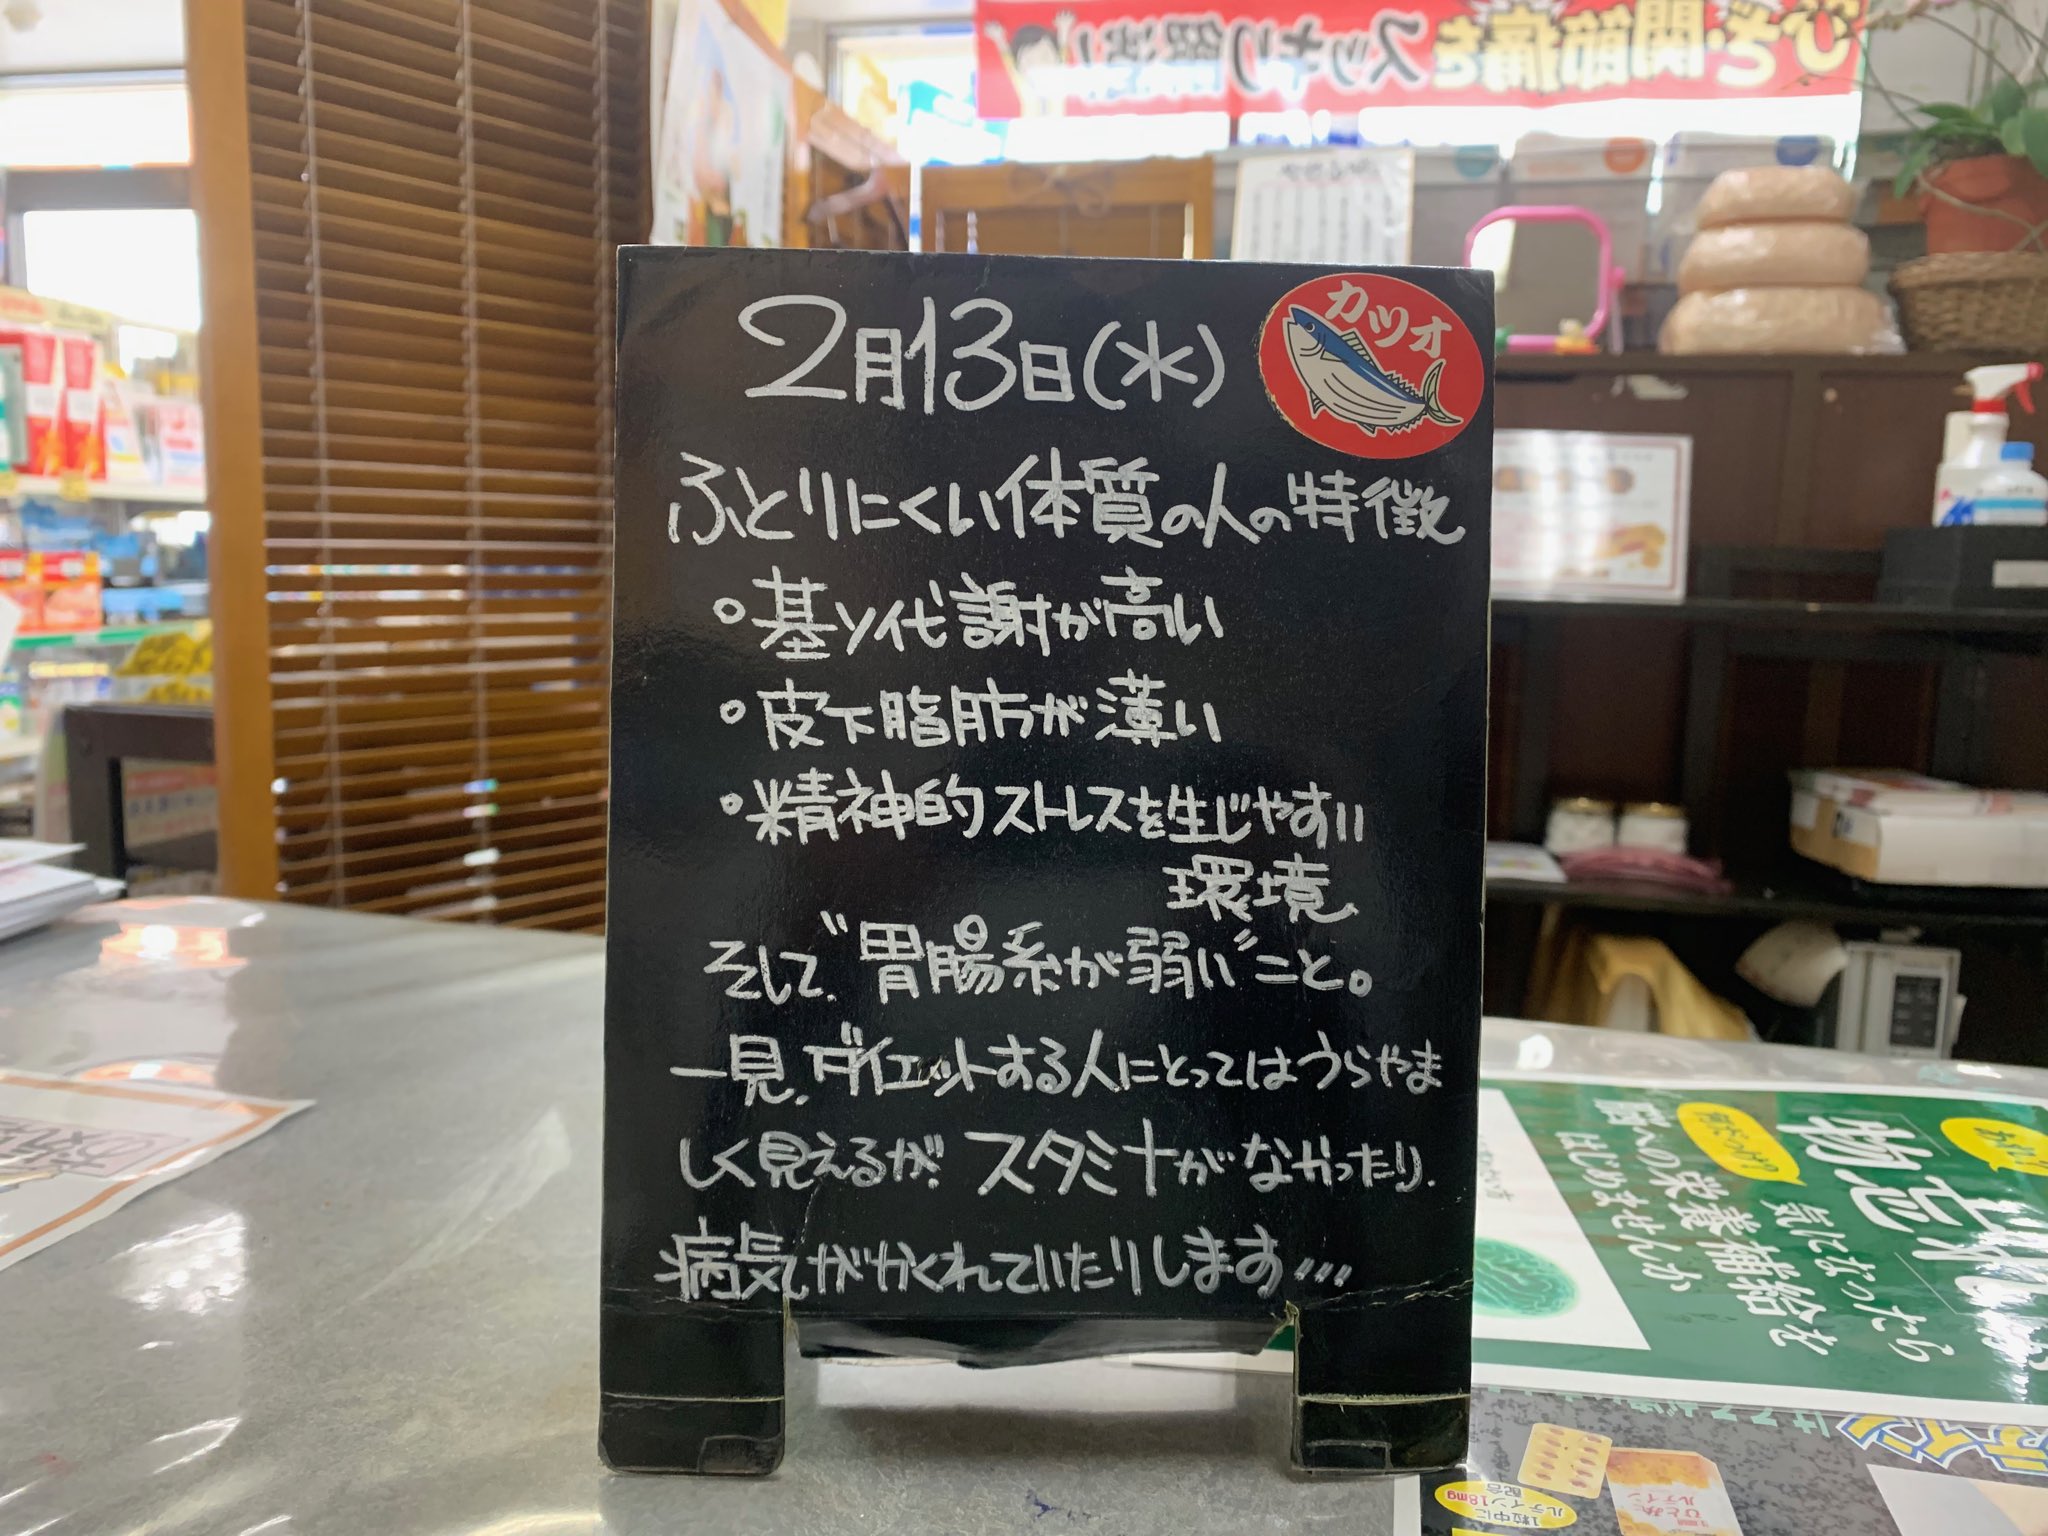 2月13日(水)
カツオ
ふとりにくい体質の人の特徴
・基ソ代謝が高い
・皮下脂肪が薄い
・精神的ストレスを生じやすい
環境
そして、"胃腸系が弱い"こと。
一見、ダイエットする人にとってはうらやま
しく見えるが、スタミナがなかったり、
病気がかくれていたりします…
ひざ・関節痛を
スッキリ解消!
物忘れ
気になったら
脳への栄養補給を
はじめませんか
1粒中に
ルテイン18mg
配合